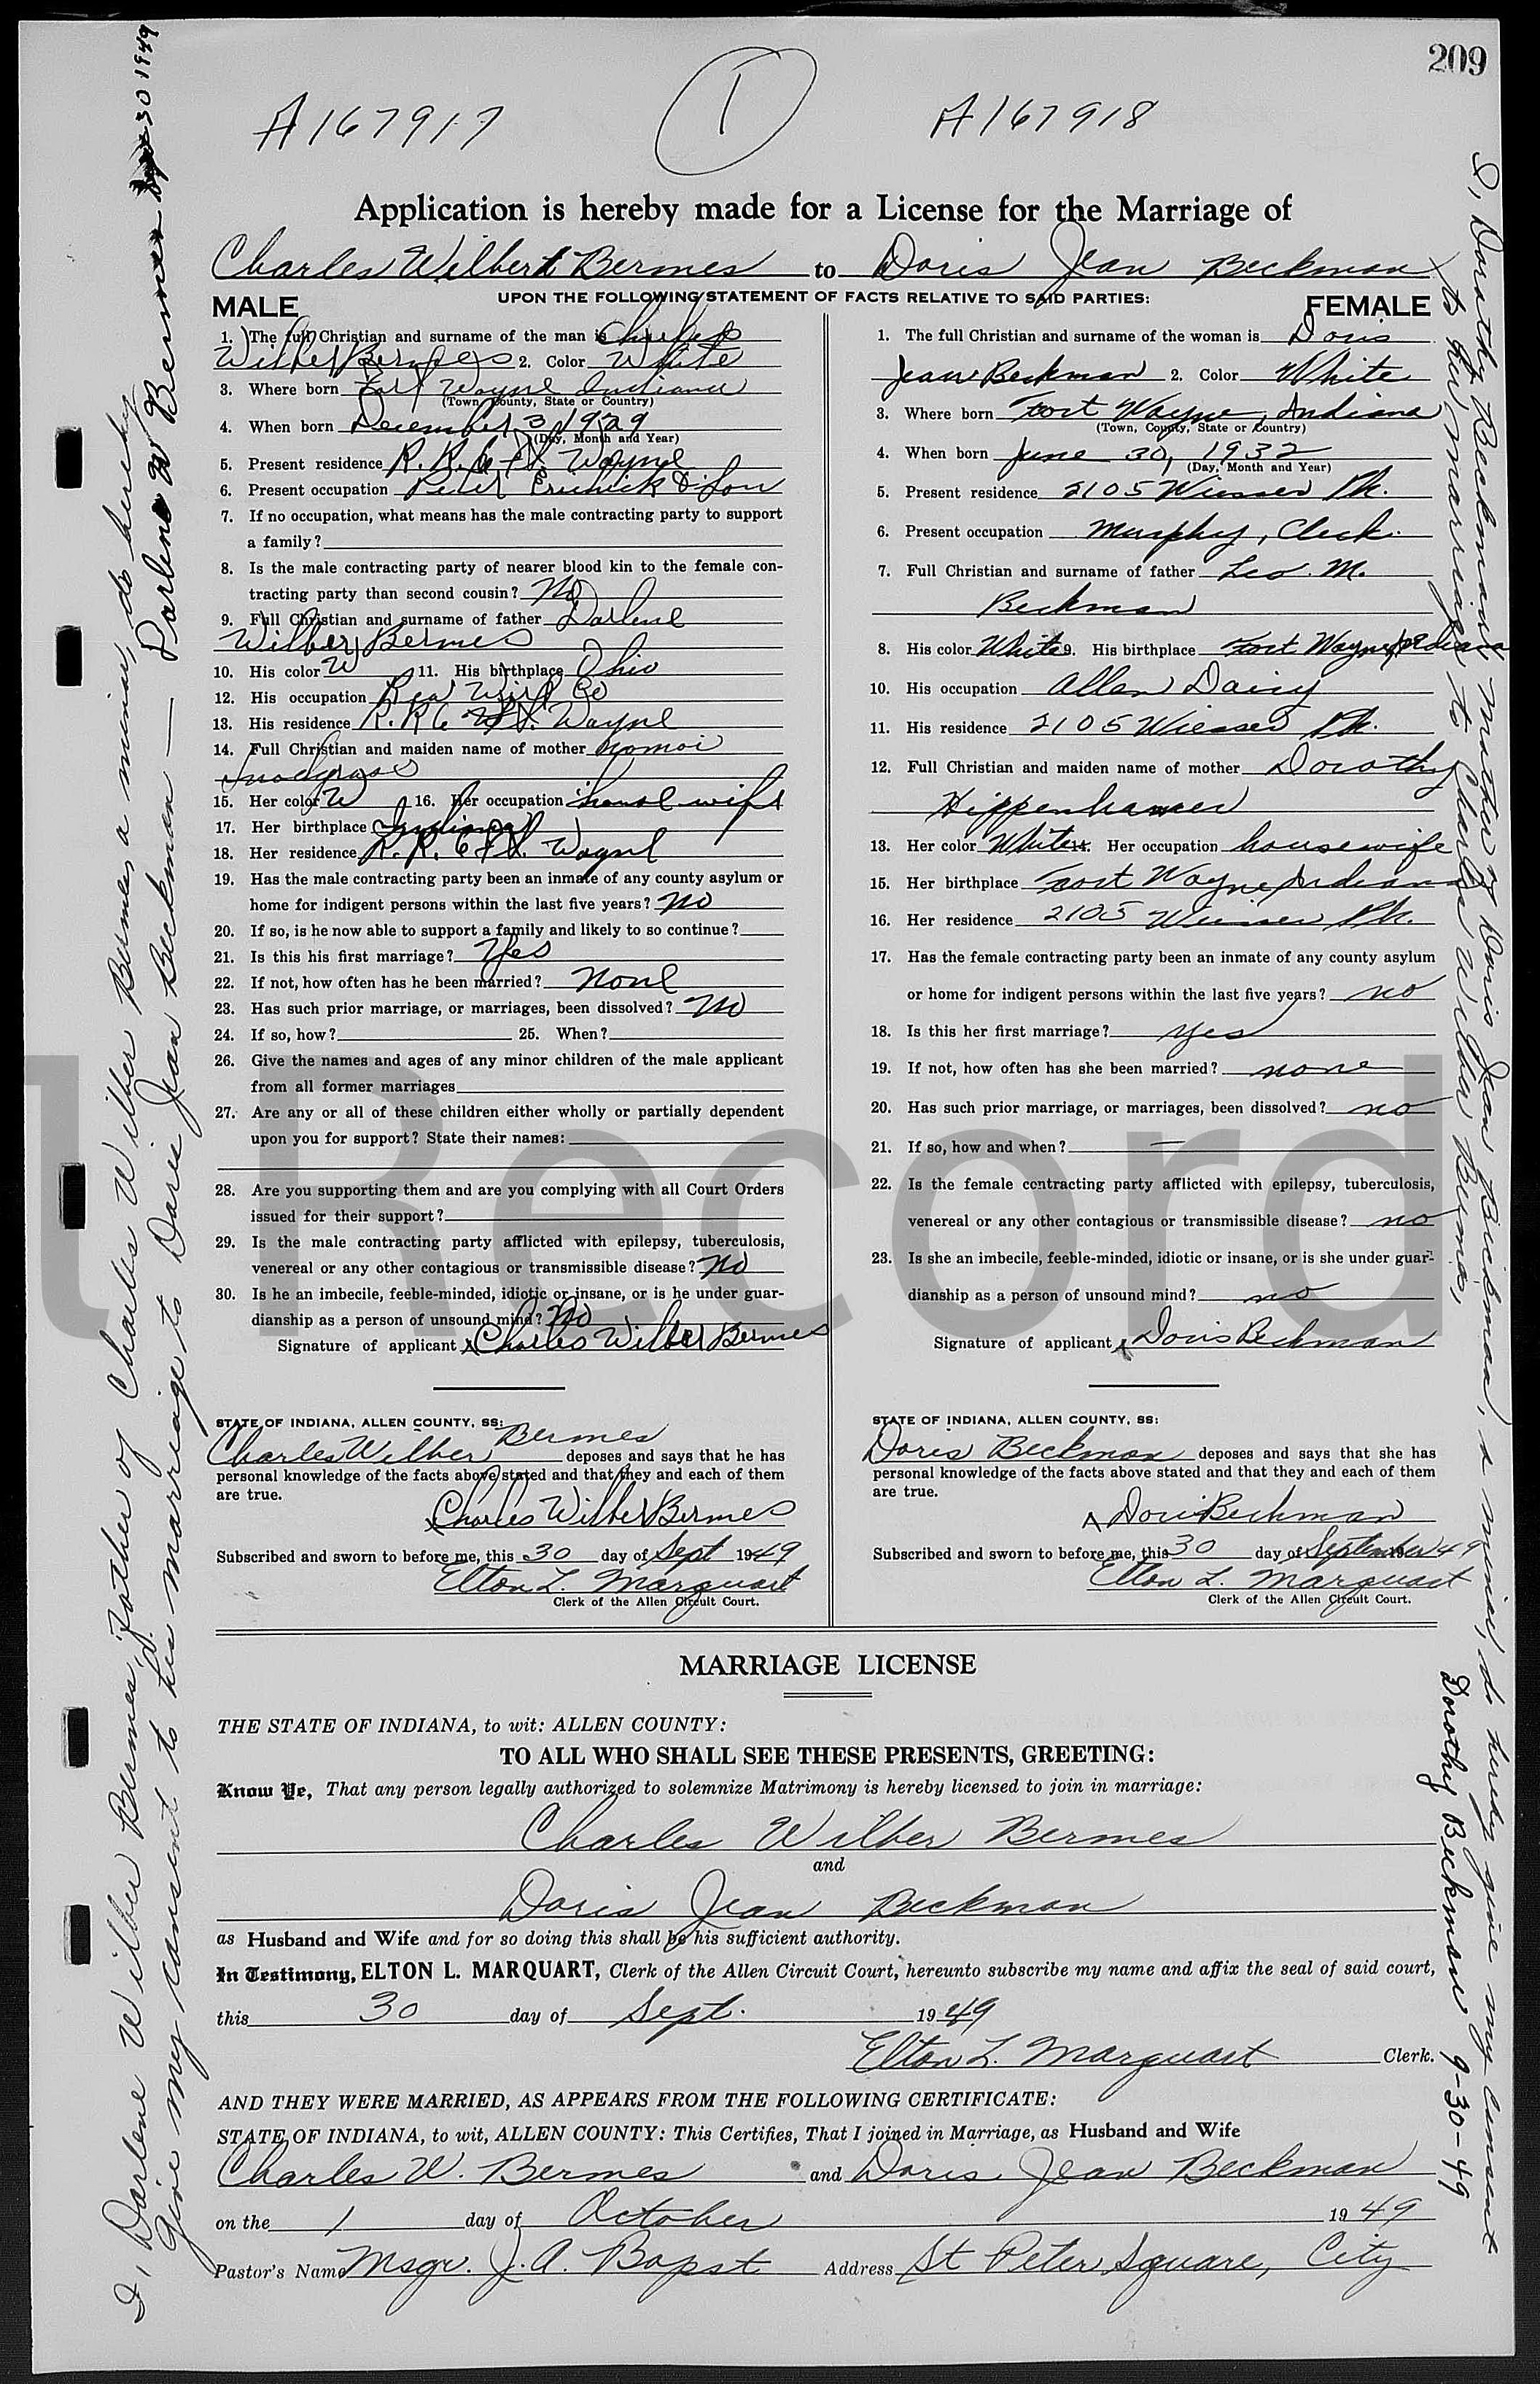 209
A167917
1
A167918
Application is hereby made for a License for the Marriage of
Charles Wilbert Bermes to Doris Jean Beckman
UPON THE FOLLOWING STATEMENT OF FACTS RELATIVE TO SAID PARTIES:
MALE
1. The full Christian and surname of the man is Charles
Wilber Bermes 2. Color White
3. Where born Fort Wayne Indiana
(Town, County, State or Country)
4. When born December 3 1929
(Day, Month and Year)
5. Present residence R. R. 6 Ft. Wayne
6. Present occupation Peter & Son
7. If no occupation, what means has the male contracting party to support
a family?
8. Is the male contracting party of nearer blood kin to the female con-
tracting party than second cousin? No
9. Full Christian and surname of father Darlene
Wilber Bermes
10. His color W 11. His birthplace Ohio
12. His occupation Rea Wire Co
13. His residence R. R 6 Ft. Wayne
14. Full Christian and maiden name of mother Nomoi
Snodgrass
15. Her color W 16. Her occupation house wife
17. Her birthplace Indiana
18. Her residence R. R. 6 Ft. Wayne
19. Has the male contracting party been an inmate of any county asylum or
home for indigent persons within the last five years? No
20. If so, is he now able to support a family and likely to so continue?
21. Is this his first marriage? Yes
22. If not, how often has he been married? None
23. Has such prior marriage, or marriages, been dissolved? No
24. If so, how? 25. When?
26. Give the names and ages of any minor children of the male applicant
from all former marriages
27. Are any or all of these children either wholly or partially dependent
upon you for support? State their names:
28. Are you supporting them and are you complying with all Court Orders
issued for their support?
29. Is the male contracting party afflicted with epilepsy, tuberculosis,
venereal or any other contagious or transmissible disease? No
30. Is he an imbecile, feeble-minded, idiotic or insane, or is he under guar-
dianship as a person of unsound mind? No
Signature of applicant x Charles Wilber Bermes
STATE OF INDIANA, ALLEN COUNTY, SS:
Charles Wilber Bermes deposes and says that he has
personal knowledge of the facts above stated and that they and each of them
are true.
x Charles Wilber Bermes
Subscribed and sworn to before me, this 30 day of Sept 1949
Elton L. Marquart
Clerk of the Allen Circuit Court.
FEMALE
1. The full Christian and surname of the woman is Doris
Jean Beckman 2. Color White
3. Where born Fort Wayne, Indiana
(Town, County, State or Country)
4. When born June 30, 1932
(Day, Month and Year)
5. Present residence 2105 Wiesser Pk.
6. Present occupation Murphy, Clerk.
7. Full Christian and surname of father Leo. M.
Beckman
8. His color White 9. His birthplace Fort Wayne, Indiana
10. His occupation Allen Dairy
11. His residence 2105 Wiesser Pk.
12. Full Christian and maiden name of mother Dorothy
Hippenhamer
13. Her color White 14. Her occupation housewife
15. Her birthplace Fort Wayne, Indiana
16. Her residence 2105 Wiesser Pk.
17. Has the female contracting party been an inmate of any county asylum
or home for indigent persons within the last five years? no
18. Is this her first marriage? yes
19. If not, how often has she been married? none
20. Has such prior marriage, or marriages, been dissolved? no
21. If so, how and when? —
22. Is the female contracting party afflicted with epilepsy, tuberculosis,
venereal or any other contagious or transmissible disease? no
23. Is she an imbecile, feeble-minded, idiotic or insane, or is she under guar-
dianship as a person of unsound mind? no
Signature of applicant x Doris Beckman
STATE OF INDIANA, ALLEN COUNTY, SS:
Doris Beckman deposes and says that she has
personal knowledge of the facts above stated and that they and each of them
are true.
x Doris Beckman
Subscribed and sworn to before me, this 30 day of September 49
Elton L. Marquart
Clerk of the Allen Circuit Court.
MARRIAGE LICENSE
THE STATE OF INDIANA, to wit: ALLEN COUNTY:
TO ALL WHO SHALL SEE THESE PRESENTS, GREETING:
Know Ye, That any person legally authorized to solemnize Matrimony is hereby licensed to join in marriage:
Charles Wilber Bermes
and
Doris Jean Beckman
as Husband and Wife and for so doing this shall be his sufficient authority.
In Testimony, ELTON L. MARQUART, Clerk of the Allen Circuit Court, hereunto subscribe my name and affix the seal of said court,
this 30 day of Sept. 1949
Elton L. Marquart Clerk.
AND THEY WERE MARRIED, AS APPEARS FROM THE FOLLOWING CERTIFICATE:
STATE OF INDIANA, to wit, ALLEN COUNTY: This Certifies, That I joined in Marriage, as Husband and Wife
Charles W. Bermes and Doris Jean Beckman
on the 1 day of October 1949
Pastor's Name Msgr. J. A. Bapst Address St Peter Square, City
I, Darlene Wilber Bermes, father of Charles Wilber Bermes a minor, do hereby
give my consent to his marriage to Doris Jean Beckman — Darlene W Bermes Sept 30 1949
I, Dorothy Beckman, mother of Doris Jean Beckman, a minor, do hereby give my consent
to her marriage to Charles Wilber Bermes,
Dorothy Beckman 9-30-49
l Record